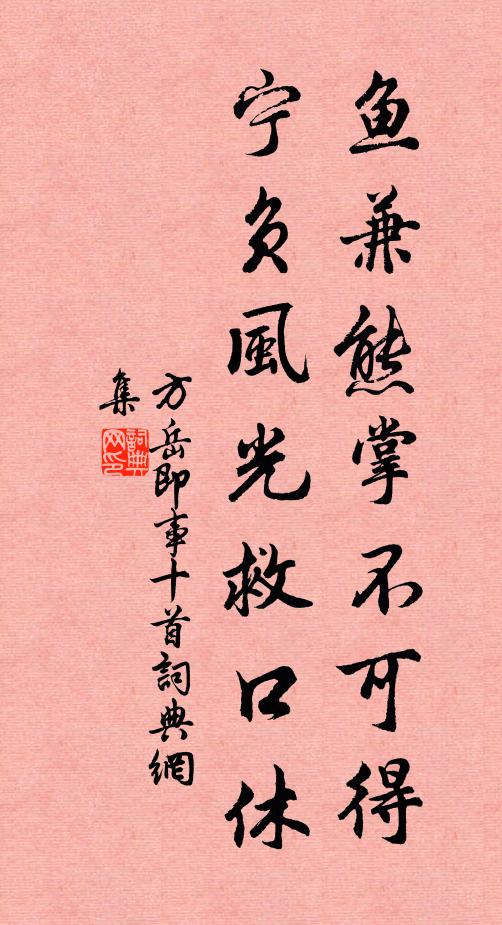 鱼兼熊掌不可得
宁负風光救口休
方岳即事十首詞典網
集
詞典网印